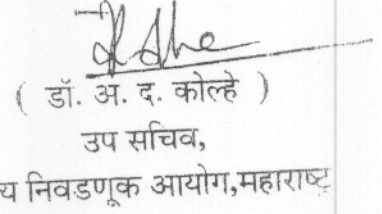 ( डॉ. अ. द. कोल्हे )
उप सचिव,
य निवडणूक आयोग,महाराष्ट्र